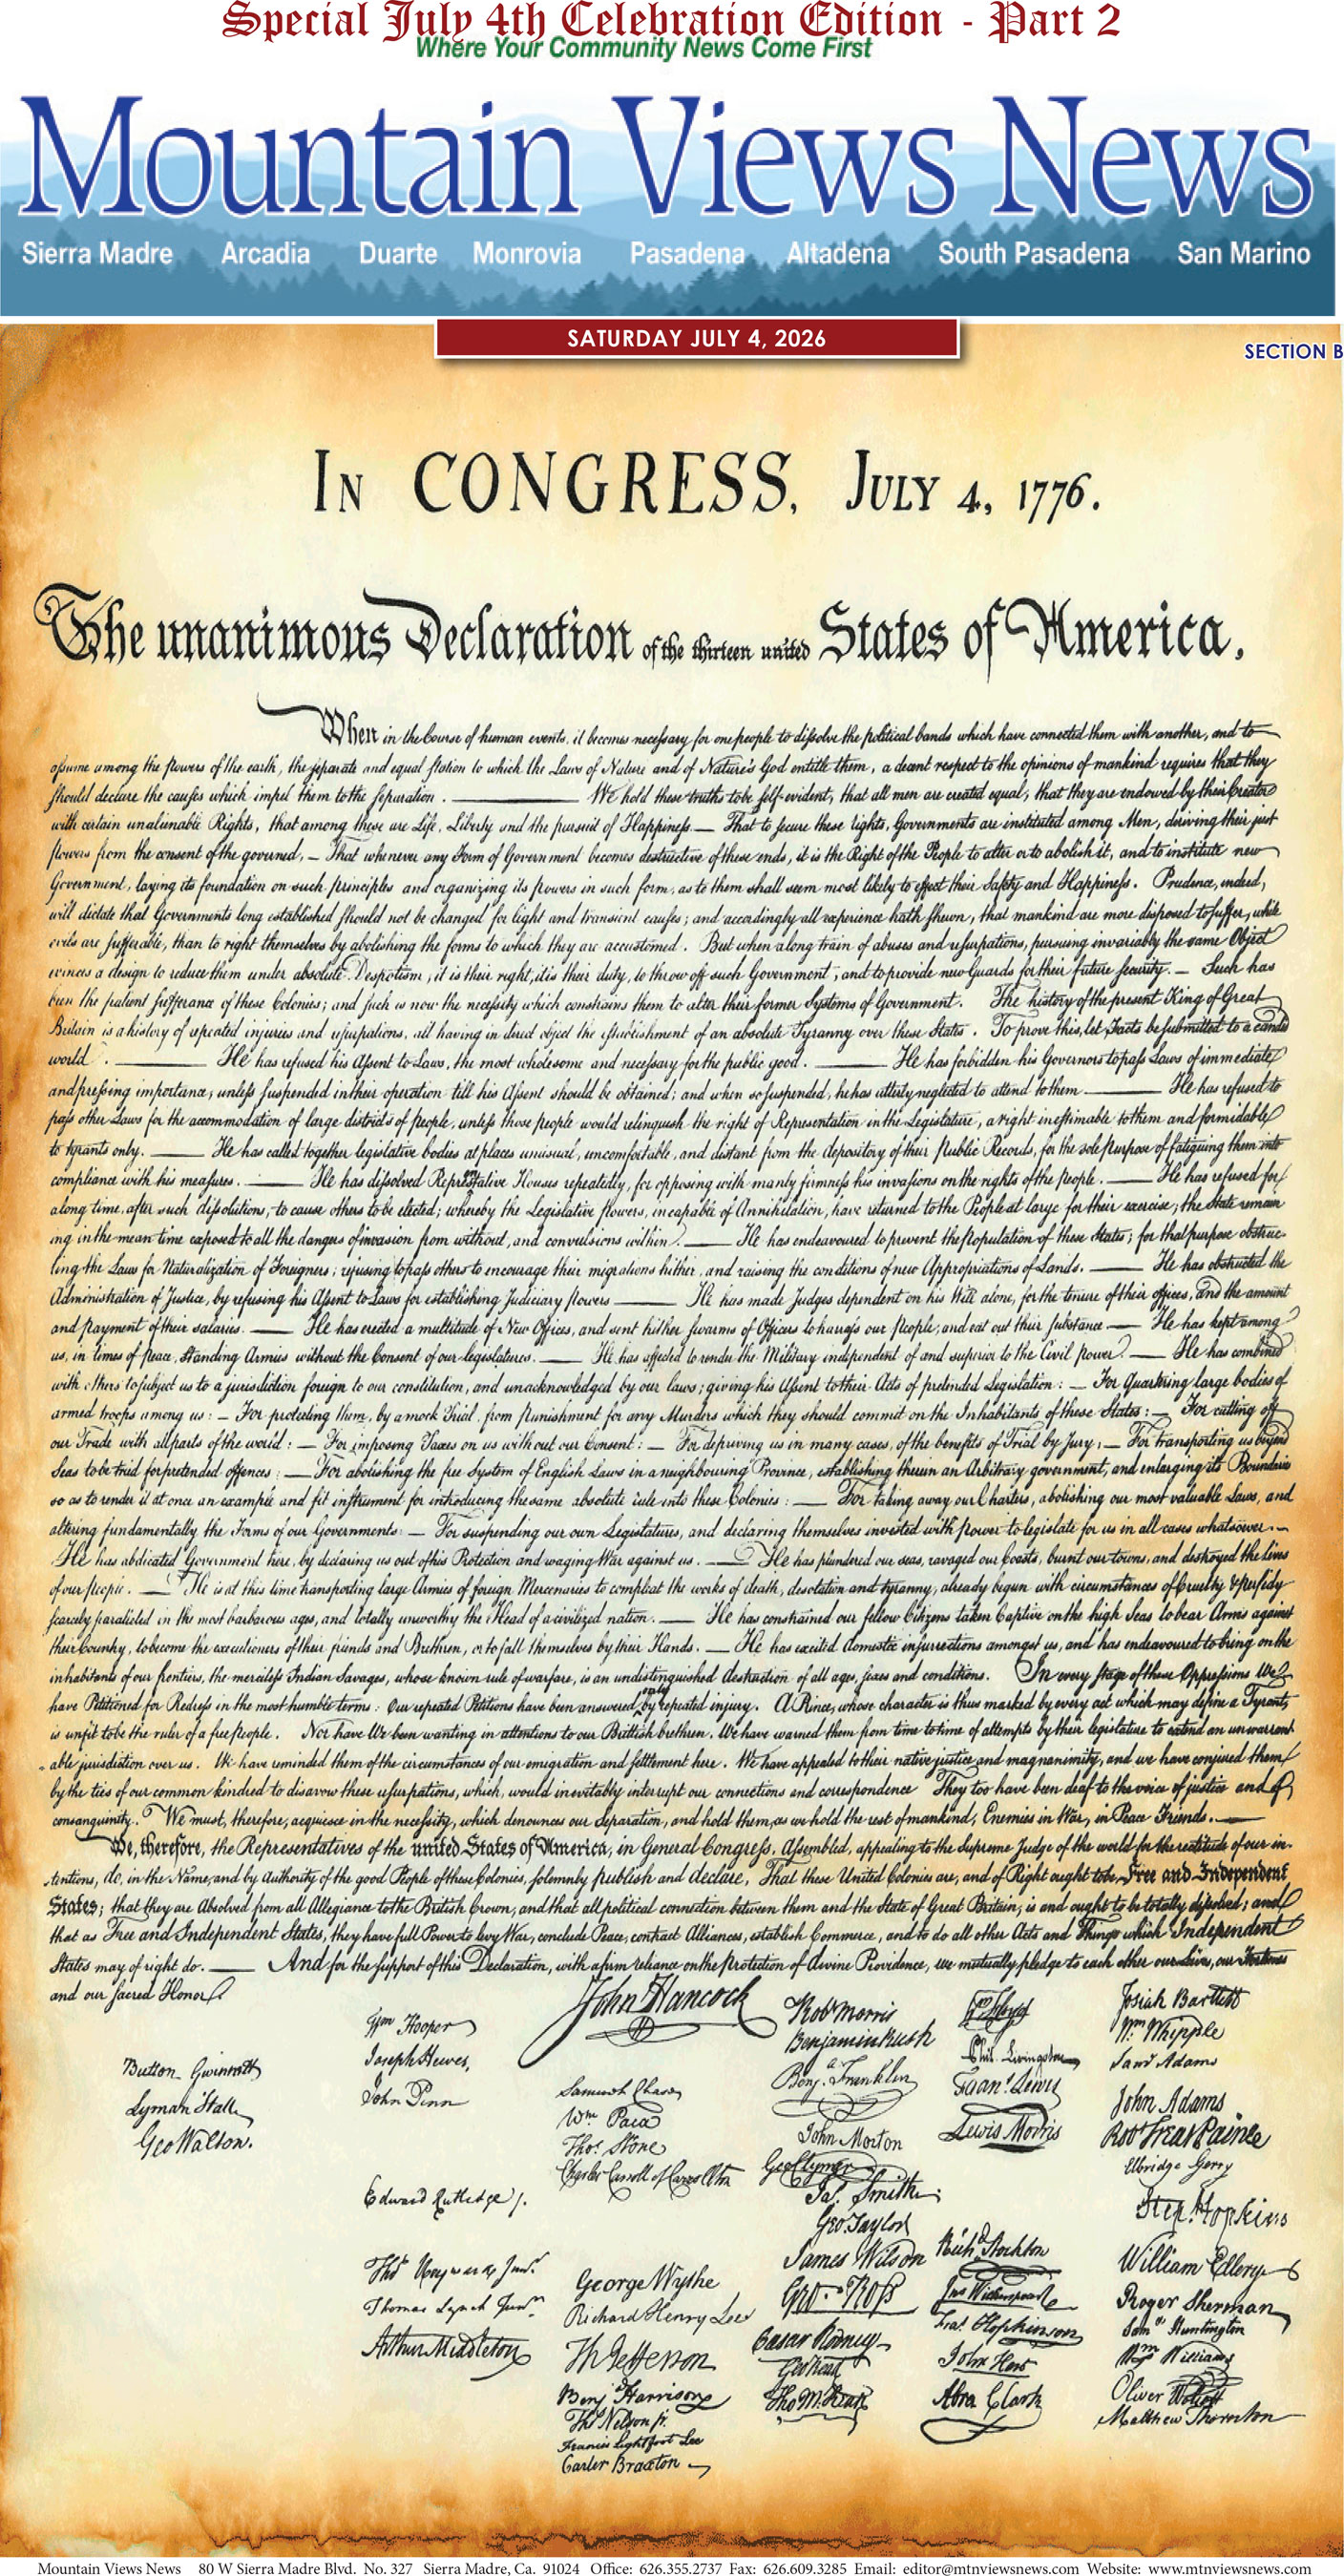 Special July 4th Celebration Edition - Part 2
Where Your Community News Come First
Mountain Views News
Sierra Madre Arcadia Duarte Monrovia Pasadena Altadena South Pasadena San Marino
SATURDAY JULY 4, 2026
SECTION B
In CONGRESS, July 4, 1776.
The unanimous Declaration of the thirteen united States of America,
When in the Course of human events, it becomes necessary for one people to dissolve the political bands which have connected them with another, and to
assume among the powers of the earth, the separate and equal station to which the Laws of Nature and of Nature's God entitle them, a decent respect to the opinions of mankind requires that they
should declare the causes which impel them to the separation. ——— We hold these truths to be self-evident, that all men are created equal, that they are endowed by their Creator
with certain unalienable Rights, that among these are Life, Liberty and the pursuit of Happiness. — That to secure these rights, Governments are instituted among Men, deriving their just
powers from the consent of the governed, — That whenever any Form of Government becomes destructive of these ends, it is the Right of the People to alter or to abolish it, and to institute new
Government, laying its foundation on such principles and organizing its powers in such form, as to them shall seem most likely to effect their Safety and Happiness. Prudence, indeed,
will dictate that Governments long established should not be changed for light and transient causes; and accordingly all experience hath shewn, that mankind are more disposed to suffer, while
evils are sufferable, than to right themselves by abolishing the forms to which they are accustomed. But when a long train of abuses and usurpations, pursuing invariably the same Object
evinces a design to reduce them under absolute Despotism, it is their right, it is their duty, to throw off such Government, and to provide new Guards for their future security. — Such has
been the patient sufferance of these Colonies; and such is now the necessity which constrains them to alter their former Systems of Government. The history of the present King of Great
Britain is a history of repeated injuries and usurpations, all having in direct object the establishment of an absolute Tyranny over these States. To prove this, let Facts be submitted to a candid
world. ——— He has refused his Assent to Laws, the most wholesome and necessary for the public good. ——— He has forbidden his Governors to pass Laws of immediate
and pressing importance, unless suspended in their operation till his Assent should be obtained; and when so suspended, he has utterly neglected to attend to them ——— He has refused to
pass other Laws for the accommodation of large districts of people, unless those people would relinquish the right of Representation in the Legislature, a right inestimable to them and formidable
to tyrants only. ——— He has called together legislative bodies at places unusual, uncomfortable, and distant from the depository of their Public Records, for the sole purpose of fatiguing them into
compliance with his measures. ——— He has dissolved Representative Houses repeatedly, for opposing with manly firmness his invasions on the rights of the people. ——— He has refused for
a long time, after such dissolutions, to cause others to be elected; whereby the Legislative powers, incapable of Annihilation, have returned to the People at large for their exercise; the State remain
ing in the mean time exposed to all the dangers of invasion from without, and convulsions within. ——— He has endeavoured to prevent the population of these States; for that purpose obstruc-
ting the Laws for Naturalization of Foreigners; refusing to pass others to encourage their migrations hither, and raising the conditions of new Appropriations of Lands. ——— He has obstructed the
Administration of Justice, by refusing his Assent to Laws for establishing Judiciary powers ——— He has made Judges dependent on his Will alone, for the tenure of their offices, and the amount
and payment of their salaries. ——— He has erected a multitude of New Offices, and sent hither swarms of Officers to harrass our people, and eat out their substance — He has kept among
us, in times of peace, Standing Armies without the Consent of our legislatures. ——— He has affected to render the Military independent of and superior to the Civil power. — He has combined
with others to subject us to a jurisdiction foreign to our constitution, and unacknowledged by our laws; giving his Assent to their Acts of pretended Legislation: — For Quartering large bodies of
armed troops among us: — For protecting them, by a mock Trial, from punishment for any Murders which they should commit on the Inhabitants of these States: — For cutting off
our Trade with all parts of the world: — For imposing Taxes on us without our Consent: — For depriving us in many cases, of the benefits of Trial by Jury: — For transporting us beyond
Seas to be tried for pretended offences: — For abolishing the free System of English Laws in a neighbouring Province, establishing therein an Arbitrary government, and enlarging its Boundaries
so as to render it at once an example and fit instrument for introducing the same absolute rule into these Colonies: ——— For taking away our Charters, abolishing our most valuable Laws, and
altering fundamentally the Forms of our Governments: — For suspending our own Legislatures, and declaring themselves invested with power to legislate for us in all cases whatsoever. —
He has abdicated Government here, by declaring us out of his Protection and waging War against us. ——— He has plundered our seas, ravaged our Coasts, burnt our towns, and destroyed the lives
of our people. — He is at this time transporting large Armies of foreign Mercenaries to compleat the works of death, desolation and tyranny, already begun with circumstances of Cruelty & perfidy
scarcely paralleled in the most barbarous ages, and totally unworthy the Head of a civilized nation. ——— He has constrained our fellow Citizens taken Captive on the high Seas to bear Arms against
their Country, to become the executioners of their friends and Brethren, or to fall themselves by their Hands. — He has excited domestic insurrections amongst us, and has endeavoured to bring on the
inhabitants of our frontiers, the merciless Indian Savages, whose known rule of warfare, is an undistinguished destruction of all ages, sexes and conditions. In every stage of these Oppressions We
have Petitioned for Redress in the most humble terms: Our repeated Petitions have been answered only by repeated injury. A Prince, whose character is thus marked by every act which may define a Tyrant,
is unfit to be the ruler of a free people. Nor have We been wanting in attentions to our Brittish brethren. We have warned them from time to time of attempts by their legislature to extend an unwarrant-
able jurisdiction over us. We have reminded them of the circumstances of our emigration and settlement here. We have appealed to their native justice and magnanimity, and we have conjured them
by the ties of our common kindred to disavow these usurpations, which, would inevitably interrupt our connections and correspondence They too have been deaf to the voice of justice and of
consanguinity. We must, therefore, acquiesce in the necessity, which denounces our Separation, and hold them, as we hold the rest of mankind, Enemies in War, in Peace Friends. ———
We, therefore, the Representatives of the united States of America, in General Congress, Assembled, appealing to the Supreme Judge of the world for the rectitude of our in-
tentions, do, in the Name, and by Authority of the good People of these Colonies, solemnly publish and declare, That these United Colonies are, and of Right ought to be Free and Independent
States; that they are Absolved from all Allegiance to the British Crown, and that all political connection between them and the State of Great Britain, is and ought to be totally dissolved; and
that as Free and Independent States, they have full Power to levy War, conclude Peace, contract Alliances, establish Commerce, and to do all other Acts and Things which Independent
States may of right do. ——— And for the support of this Declaration, with a firm reliance on the Protection of divine Providence, we mutually pledge to each other our Lives, our Fortunes
and our Sacred Honor.
Button Gwinnett
Lyman Hall
Geo Walton.
Wm Hooper
Joseph Hewes,
John Penn
Edward Rutledge /.
Thos Heyward Junr.
Thomas Lynch Junr.
Arthur Middleton
John Hancock
Samuel Chase
Wm. Paca
Thos. Stone
Charles Carroll of Carrollton
George Wythe
Richard Henry Lee
Th Jefferson
Benj Harrison
Thos Nelson jr.
Francis Lightfoot Lee
Carter Braxton
Robt Morris
Benjamin Rush
Benja. Franklin
John Morton
Geo Clymer
Jas. Smith
Geo. Taylor
James Wilson
Geo. Ross
Caesar Rodney
Geo Read
Tho M:Kean
Wm Floyd
Phil. Livingston
Frans. Lewis
Lewis Morris
Richd. Stockton
Jno Witherspoon
Fras. Hopkinson
John Hart
Abra Clark
Josiah Bartlett
Wm. Whipple
Saml Adams
John Adams
Robt Treat Paine
Elbridge Gerry
Step. Hopkins
William Ellery
Roger Sherman
Saml Huntington
Wm Williams
Oliver Wolcott
Matthew Thornton
Mountain Views News 80 W Sierra Madre Blvd. No. 327 Sierra Madre, Ca. 91024 Office: 626.355.2737 Fax: 626.609.3285 Email: editor@mtnviewsnews.com Website: www.mtnviewsnews.com